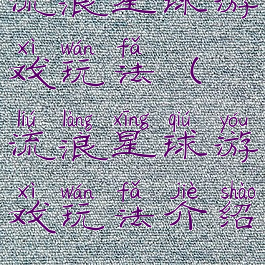 流浪星球游
xì wán fǎ
戏玩法（
liú làng xīng qiú yóu
流浪星球游
xì wán fǎ jiè shào
戏玩法介绍